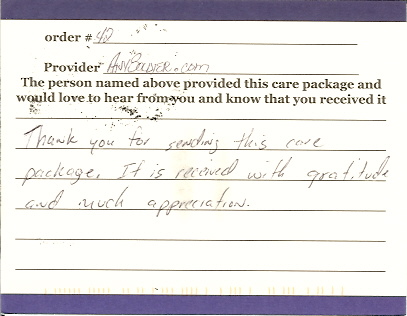 order # 42
Provider AnySoldier.com
The person named above provided this care package and
would love to hear from you and know that you received it
Thank you for sending this care
package. It is received with gratitude
and much appreciation.